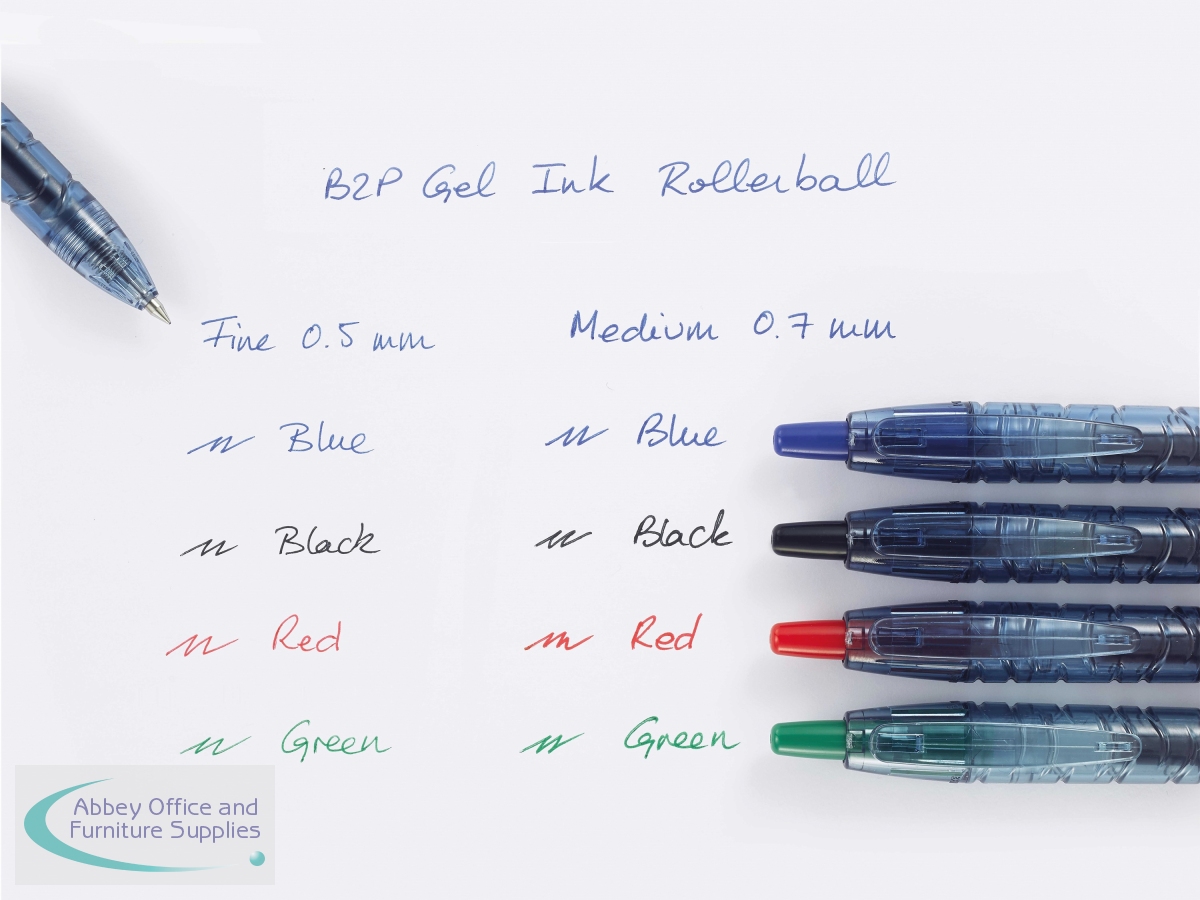 B2P Gel Ink Rollerball
Fine 0.5 mm Medium 0.7 mm
Blue Blue
Black Black
Red Red
Green Green
Abbey Office and
Furniture Supplies